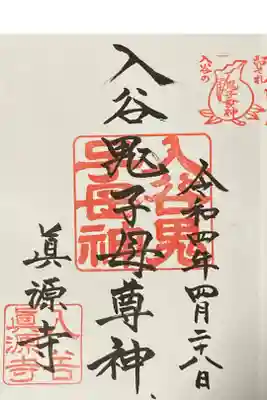 入谷鬼子母尊神
令和四年四月二十八日
眞源寺
入谷鬼子母神
入谷眞源寺
入谷の
鬼子母神